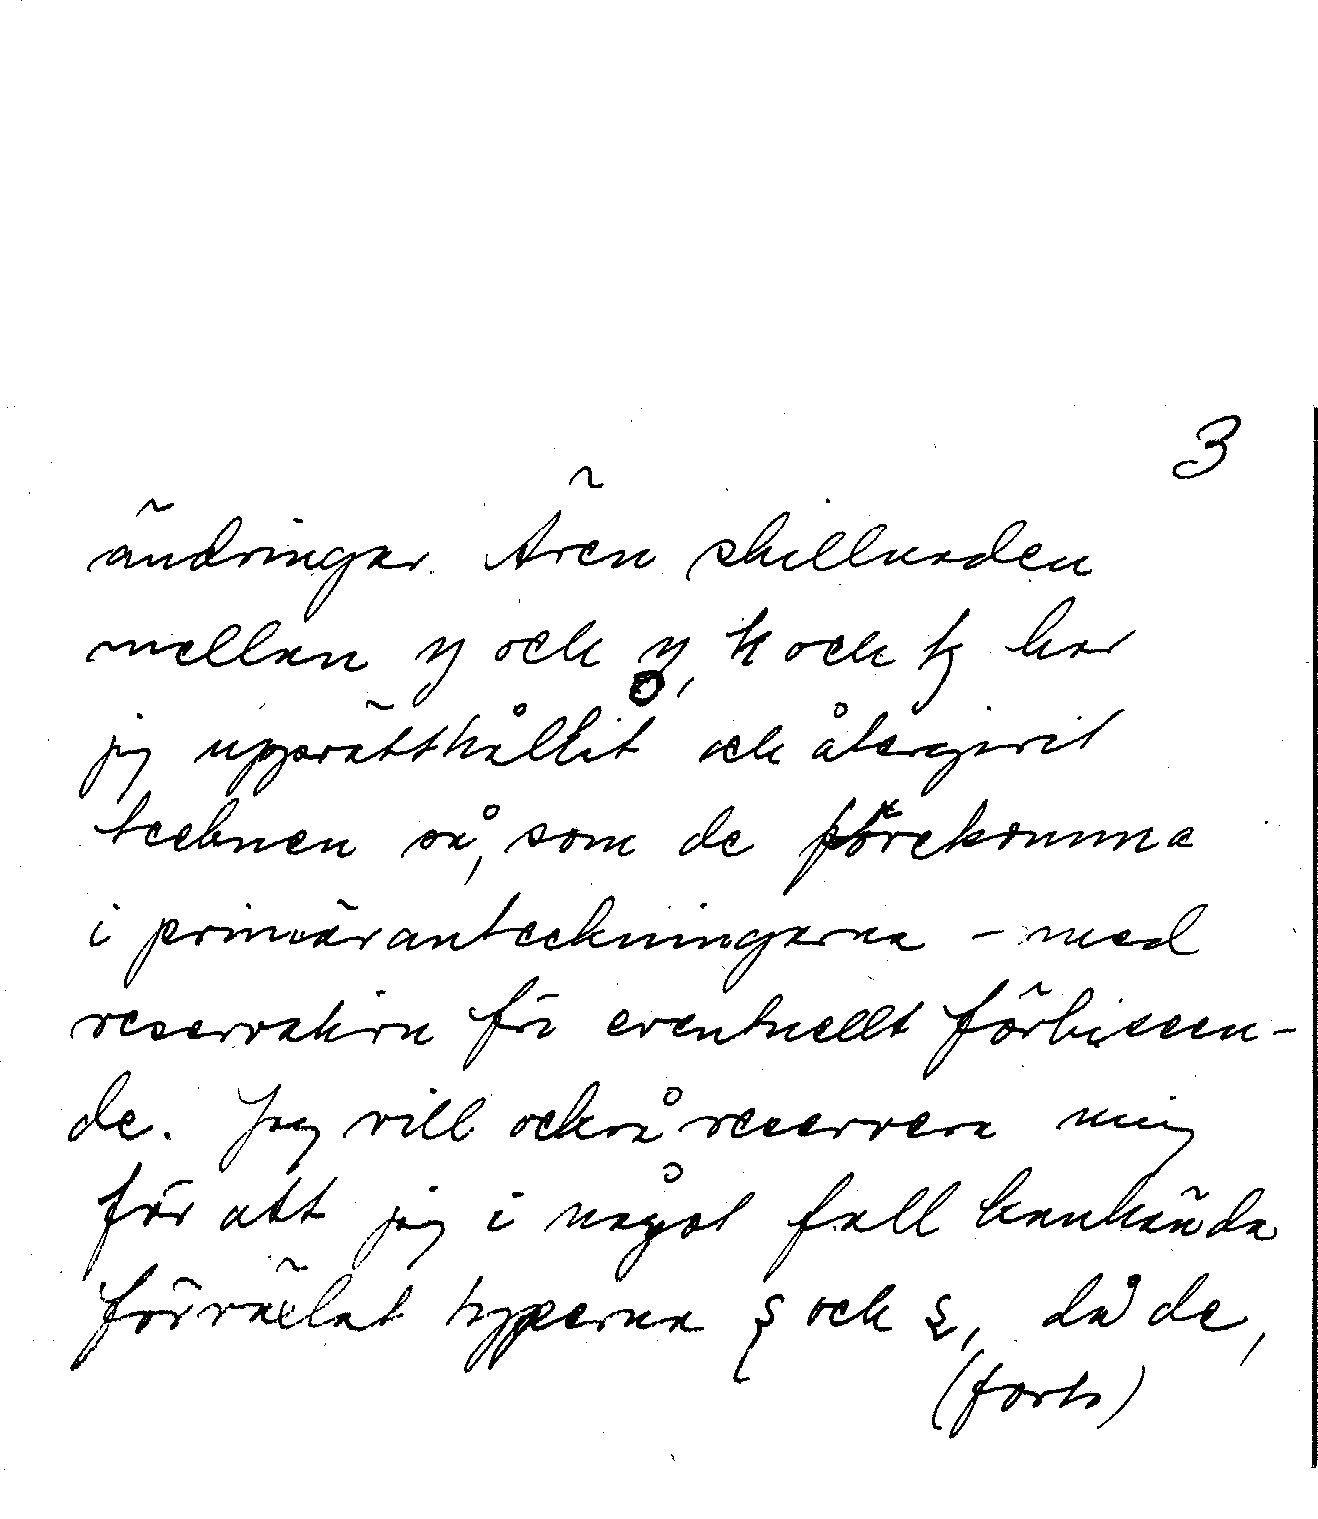 3
ändringar. Även skillnaden
mellan y och y̥, k och ꝁ har
jag upprätthållit och återgivit
tecknen så, som de förekomma
i primäranteckningarna – med
reservation för eventuellt förbiseen-
de. Jag vill också reservera mig
för att jag i något fall kankända
förväxlat typerna ȿ och s̬, då de,
(forts)